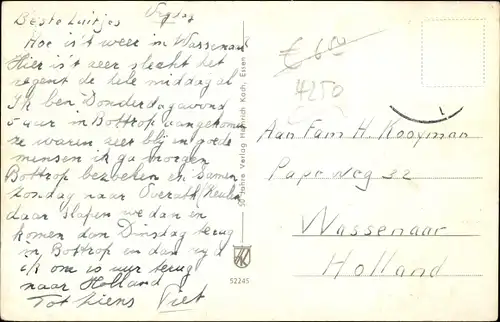 Vrydag
Beste Luitjes
Hoe is't weer in Wassenaar
Hier is't zeer slecht het
regent de hele middag al
Ik ben Donderdagavond
5 uur in Bottrop aangekomen
ze waren zeer blij in goede
mensen ik ga morgen
Bottrop bezoeken en samen
Zondag naar Overath (Keulen
daar slapen we dan en
komen dan Dinsdag terug
in Bottrop en dan
ik om 12 uur terug
naar Holland
Tot ziens Piet
50 Jahre Verlag Heinrich Koch, Essen
52245
€ 6,50
4250
Aan Fam H. Kooyman
Pape weg 32
Wassenaar
Holland